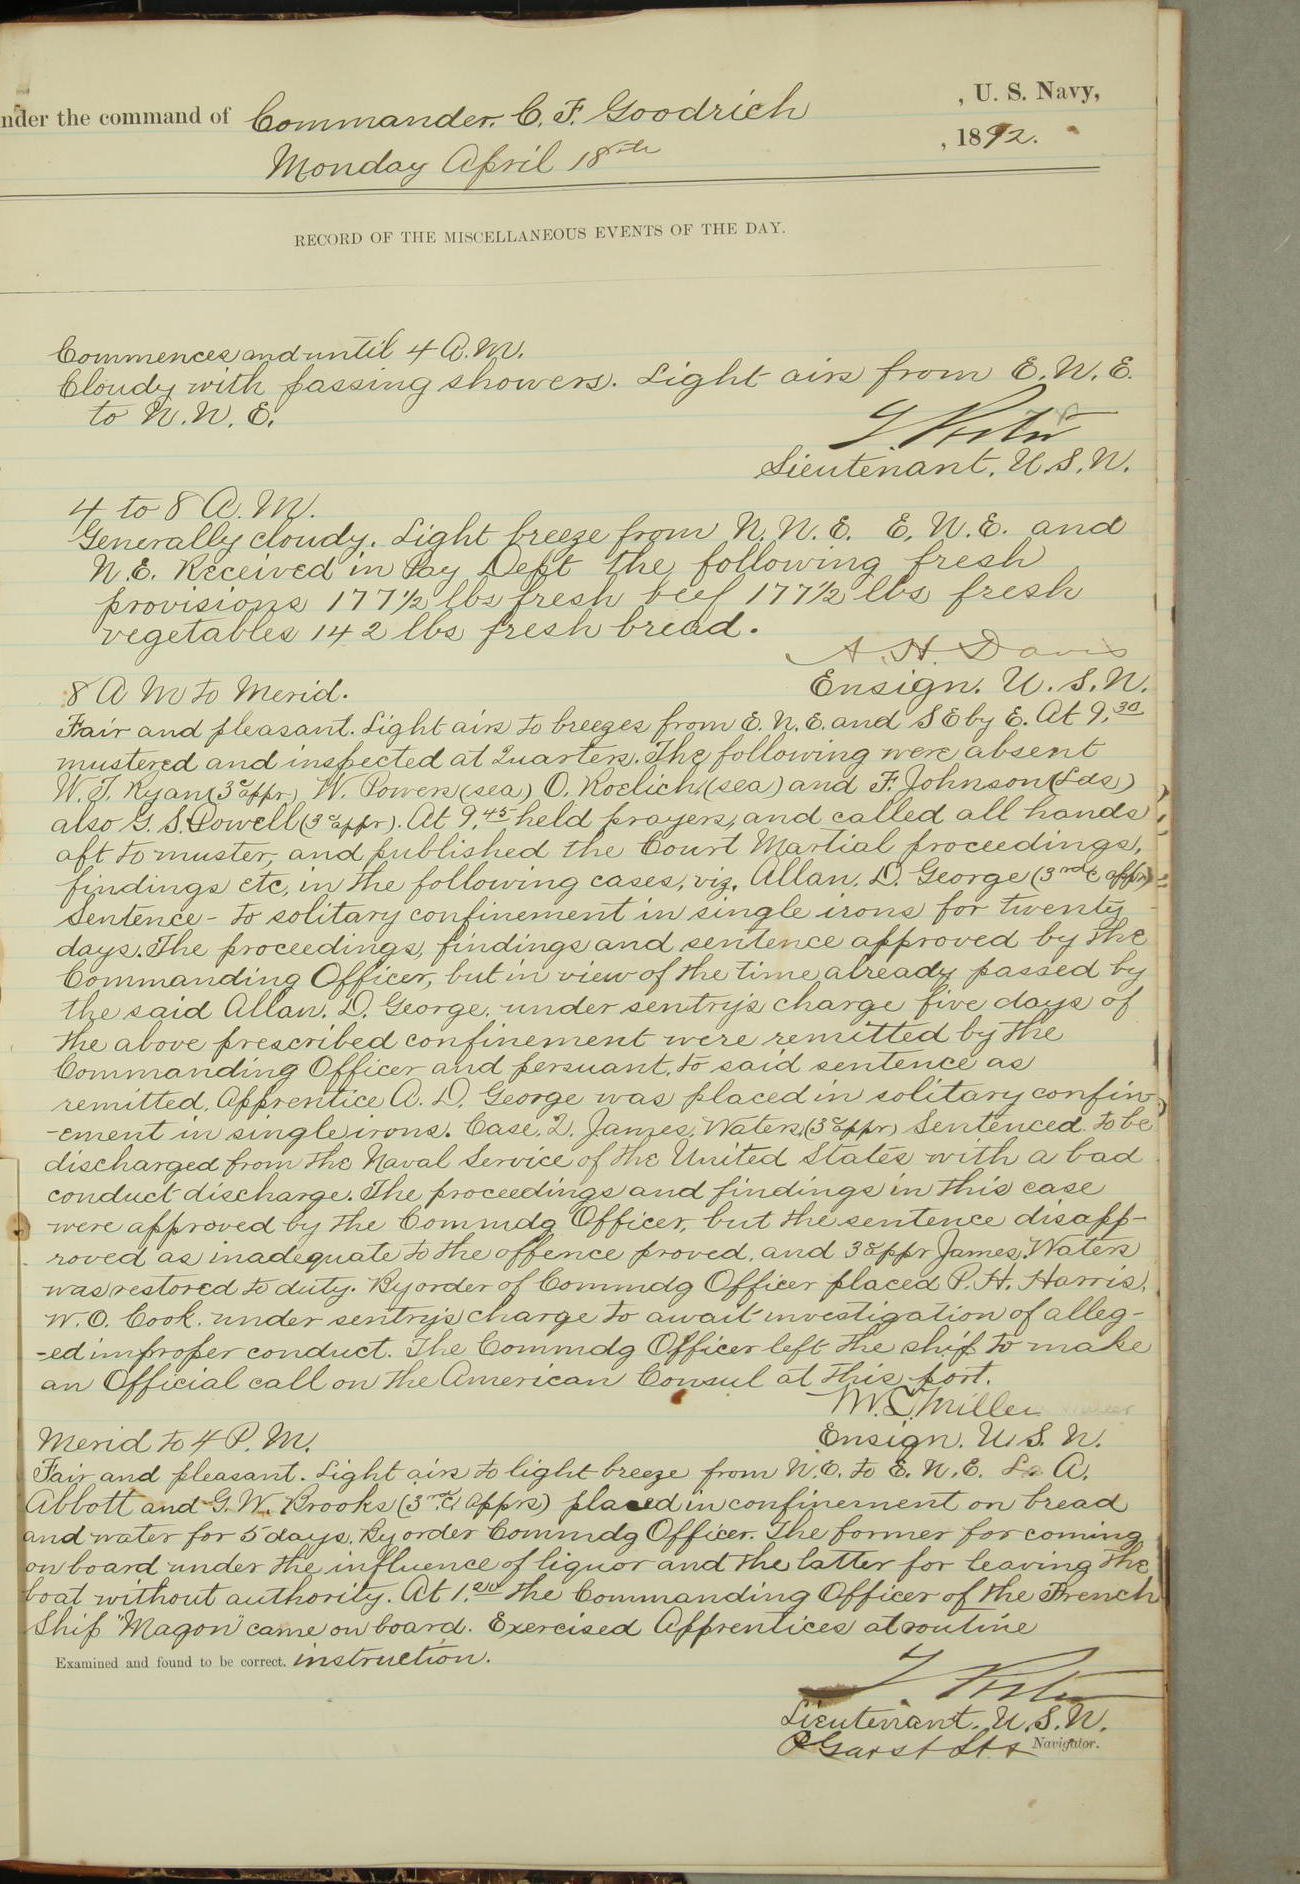 nder the command of Commander. C. F. Goodrich , U. S. Navy,
Monday April 18th , 1892.
RECORD OF THE MISCELLANEOUS EVENTS OF THE DAY.
Commences and until 4 A.M.
Cloudy with passing showers. Light airs from E.N.E.
to N.N.E.
Lieutenant. U.S.N.
4 to 8 A.M.
Generally cloudy. Light breeze from N.N.E. E.N.E. and
N.E. Received in Pay Dept the following fresh
provisions 177 1/2 lbs fresh beef 177 1/2 lbs fresh
vegetables 142 lbs fresh bread.
A. H. Davis
Ensign. U.S.N.
8 A M to Merid.
Fair and pleasant. Light airs to breezes from E.N.E. and S E by E. At 9.30
mustered and inspected at Quarters. The following were absent
W. T. Ryan (3c appr) W. Powers (sea) O. Roelich (sea) and F. Johnson (Lds)
also G. S. Powell (3c appr). At 9.45 held prayers, and called all hands
aft to muster, and published the Court Martial proceedings,
findings etc, in the following cases, viz. Allan. D. George (3rd c appr)
Sentence - to solitary confinement in single irons for twenty
days. The proceedings, findings and sentence approved by the
Commanding Officer, but in view of the time already passed by
the said Allan. D. George. under sentry's charge five days of
the above prescribed confinement were remitted by the
Commanding Officer and persuant. to said sentence as
remitted. Apprentice A. D. George was placed in solitary confin-
-ement in single irons. Case. 2. James. Waters. (3c appr) Sentenced to be
discharged from the Naval Service of the United States with a bad
conduct discharge. The proceedings and findings in this case
were approved by the Commdg Officer, but the sentence disapp-
roved as inadequate to the offence proved. and 3c appr James. Waters
was restored to duty. By order of Commdg Officer placed P. H. Harris,
W. O. Cook. under sentry's charge to await investigation of alleg-
-ed improper conduct. The Commdg Officer left the ship to make
an Official call on the American Consul at this port.
W. G. Miller
Merid to 4 P.M. Ensign. U.S.N.
Fair and pleasant. Light airs to light breeze from N.E. to E.N.E. A.
Abbott and G. W. Brooks (3rd c. apprs) placed in confinement on bread
and water for 5 days. By order Commdg Officer. The former for coming
on board under the influence of liquor and the latter for leaving the
boat without authority. At 1.20 the Commanding Officer of the French
Ship "Magon" came on board. Exercised Apprentices at routine
Examined and found to be correct. instruction.
Lieutenant. U.S.N.
Garst Navigator.